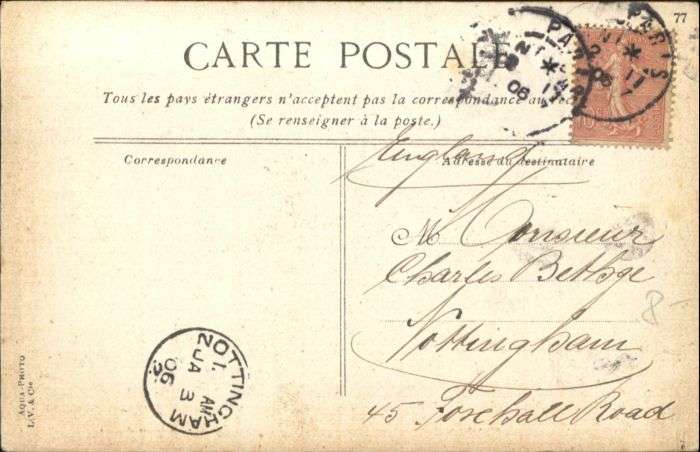 77
CARTE POSTALE
Tous les pays étrangers n'acceptent pas la correspondance au
(Se renseigner à la poste.)
Correspondance
Adresse du destinataire
England
M Monsieur
Charles
Nottingham
45 Road
PARIS
PARIS
06
NOTTINGHAM
1. AM
JA 3
06
AQUA-PHOTO
L.V. & Cie
8-